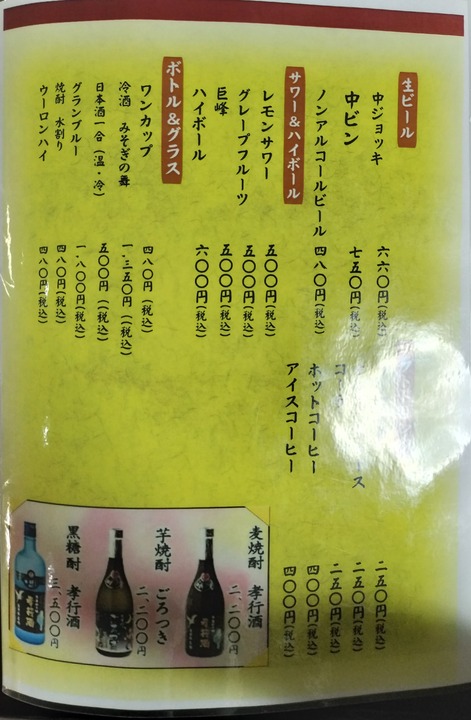 生ビール
中ジョッキ 六六〇円(税込)
中ビン 七五〇円(税込)
ノンアルコールビール 四八〇円(税込)
サワー&ハイボール
レモンサワー 五〇〇円(税込)
グレープフルーツ 五〇〇円(税込)
巨峰 五〇〇円(税込)
ハイボール 六〇〇円(税込)
ボトル&グラス
ワンカップ 四八〇円(税込)
冷酒 みそぎの舞 一、三五〇円((税込)
日本酒一合(温・冷) 五〇〇円((税込)
グランブルー 一、八〇〇円(税込)
焼酎 水割り 四八〇円(税込)
ウーロンハイ 四八〇円(税込)
二五〇円(税込)
ース 二五〇円(税込)
コーラ 二五〇円(税込)
ホットコーヒー 四〇〇円(税込)
アイスコーヒー 四〇〇円(税込)
麦焼酎 孝行酒
二、二〇〇円
芋焼酎 ごろつき
二、二〇〇円
黒糖酎 孝行酒
三、五〇〇円